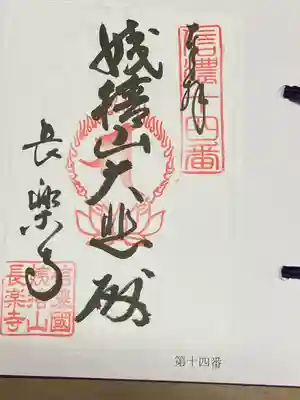 奉拝
信濃十四番
姨捨山大悲殿
長楽寺
信濃國
姨捨山
長楽寺
第十四番